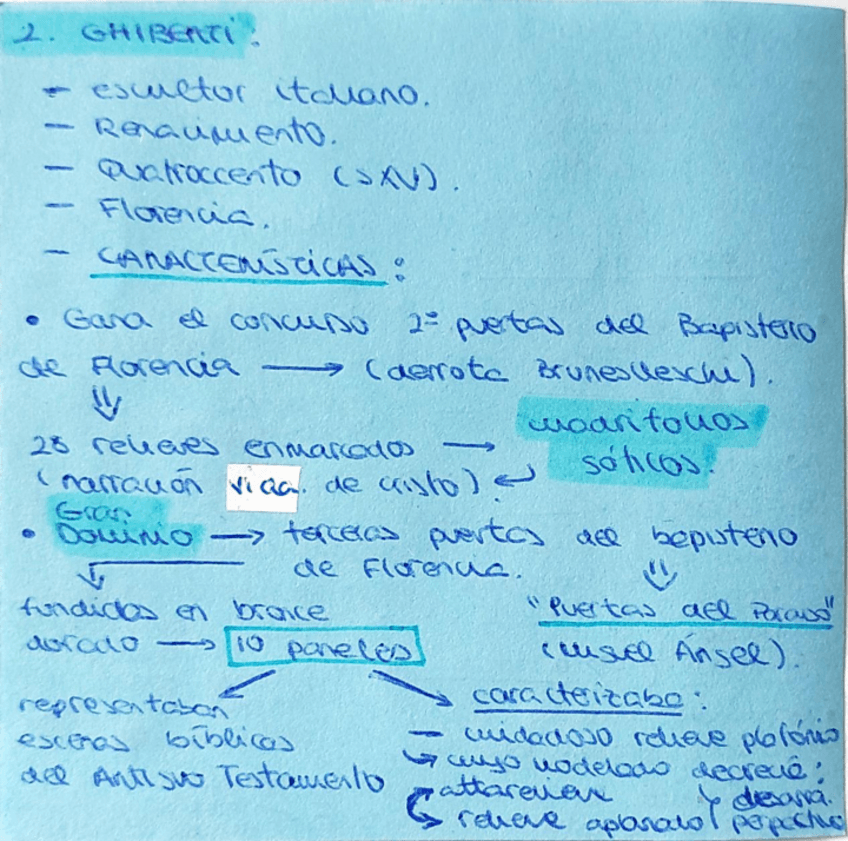 2. GHIBERTI:
- escultor italiano.
- Renacimiento.
- Quattroccento (sXV).
- Florencia.
- CARACTERÍSTICAS:
• Gana el concurso 2ª puertas del Bapisterio
de Florencia → (derrota Bruneslleschi).
⇓
28 relieves enmarcados → cuadrifolios
góticos.
(narración vida de cristo).
Gran
• Dominio → terceras puertas del bapisterio
de Florencia.
fundidas en bronce
dorado → 10 paneles
"Puertas del Paraiso"
(Miguel Ángel).
representaban
escenas bíblicas
del Antiguo Testamento
caracterizaba:
- cuidadoso relieve
↳ cuyo modelado decrecié:
relieve aplanado